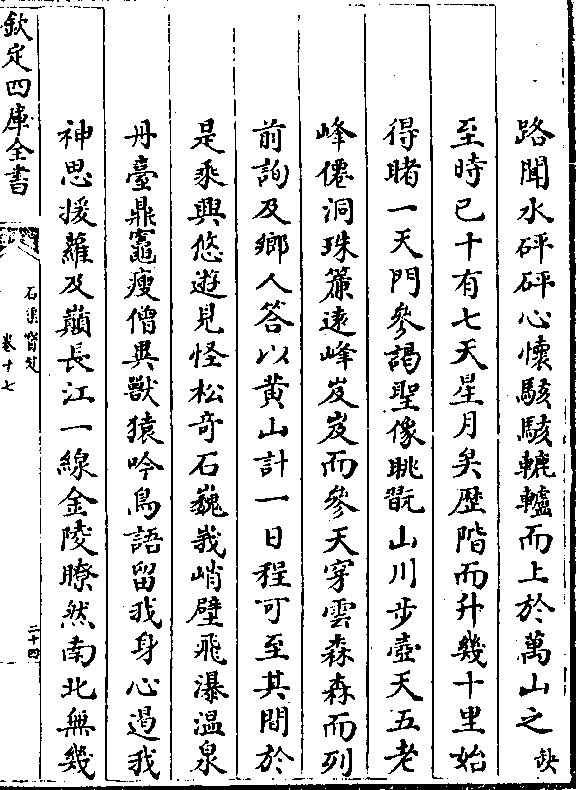 路聞水砰砰心懷駭駭轆轤而上於萬山之缺
至時已十有七天星月矣歴階而升幾十里始
得睹一天門參謁聖像眺翫山川步壺天五老
峰僊洞珠簾逺峰岌岌而參天穿雲森森而列
前詢及鄉人答以黄山計一日程可至其間於
是乘興悠遊見怪松奇石巍峩峭壁飛瀑温泉
丹臺鼎竈瘦僧異獸猿吟鳥語留我身心遏我
神思援蘿及巔長江一線金陵瞭然南北無幾
欽定四庫全書
石渠寳笈
卷十七
二十四